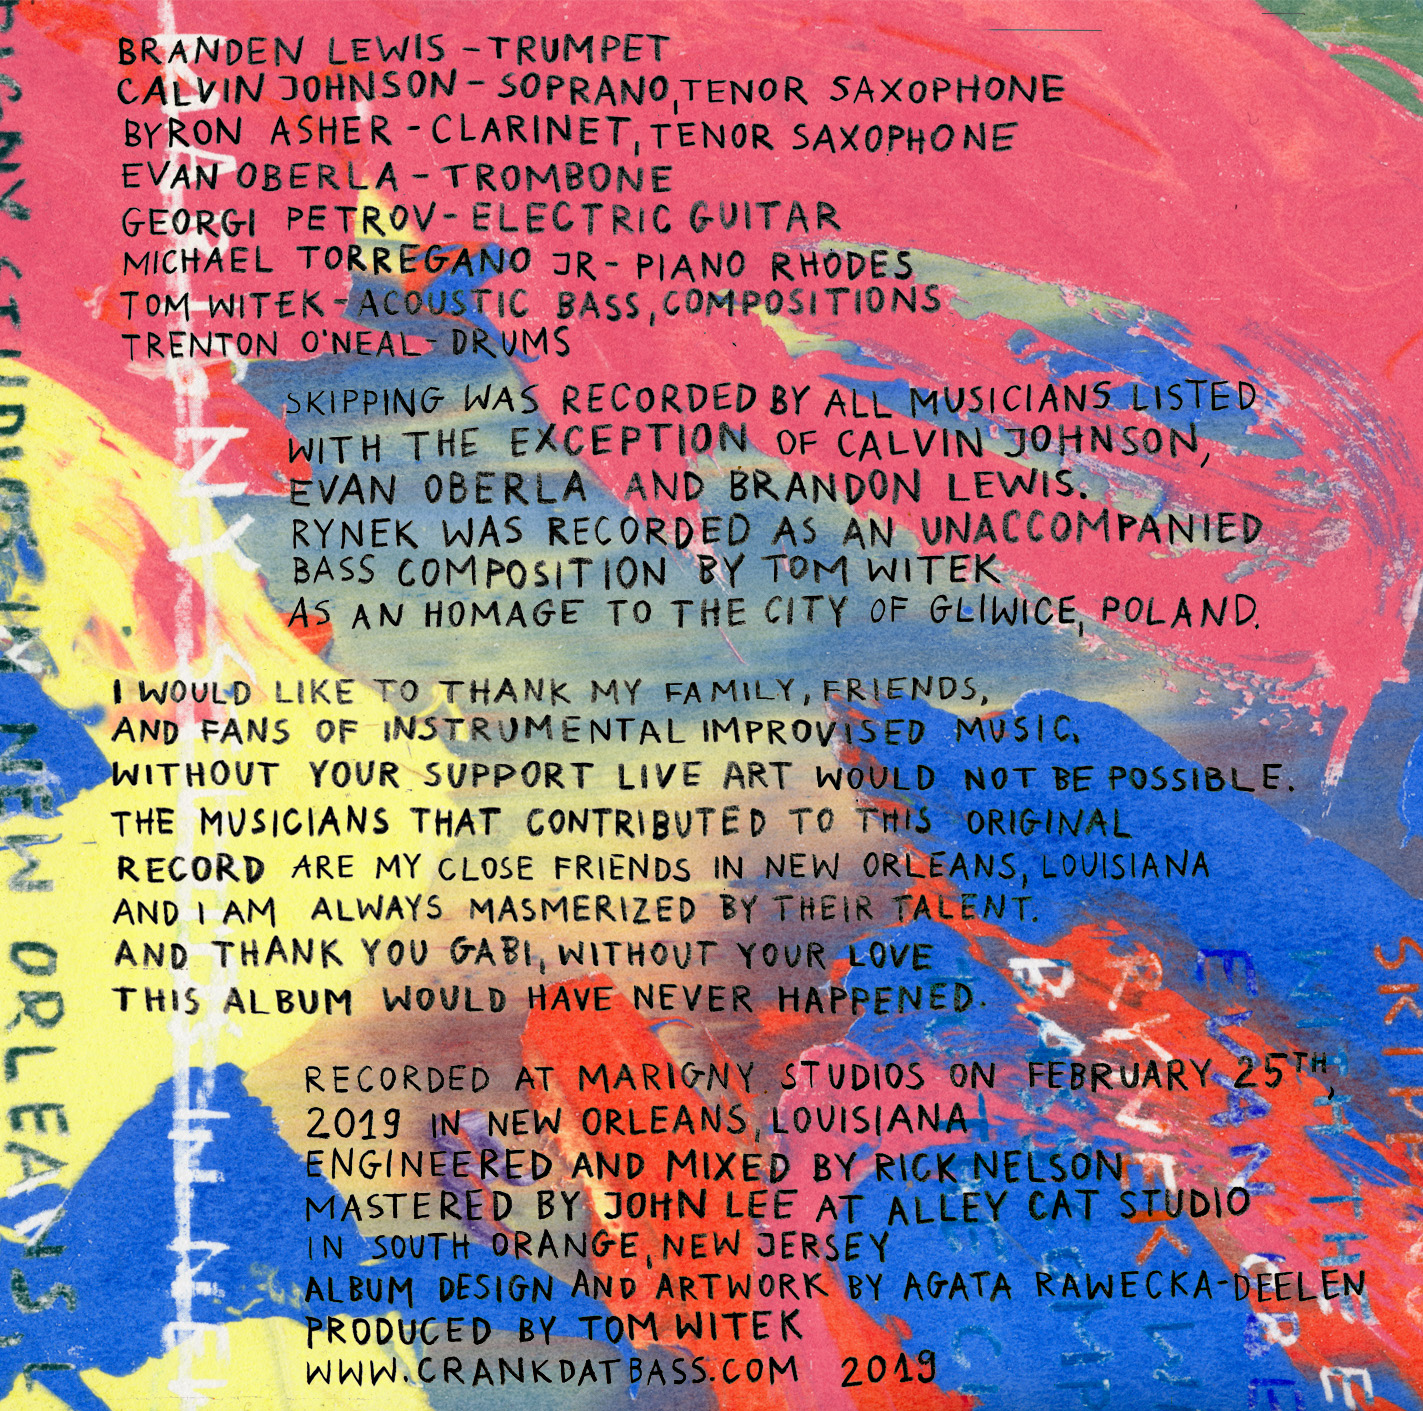 BRANDEN LEWIS - TRUMPET
CALVIN JOHNSON - SOPRANO, TENOR SAXOPHONE
BYRON ASHER - CLARINET, TENOR SAXOPHONE
EVAN OBERLA - TROMBONE
GEORGI PETROV - ELECTRIC GUITAR
MICHAEL TORREGANO JR - PIANO RHODES
TOM WITEK - ACOUSTIC BASS, COMPOSITIONS
TRENTON O'NEAL - DRUMS
SKIPPING WAS RECORDED BY ALL MUSICIANS LISTED
WITH THE EXCEPTION OF CALVIN JOHNSON,
EVAN OBERLA AND BRANDON LEWIS.
RYNEK WAS RECORDED AS AN UNACCOMPANIED
BASS COMPOSITION BY TOM WITEK
AS AN HOMAGE TO THE CITY OF GLIWICE, POLAND.
I WOULD LIKE TO THANK MY FAMILY, FRIENDS,
AND FANS OF INSTRUMENTAL IMPROVISED MUSIC.
WITHOUT YOUR SUPPORT LIVE ART WOULD NOT BE POSSIBLE.
THE MUSICIANS THAT CONTRIBUTED TO THIS ORIGINAL
RECORD ARE MY CLOSE FRIENDS IN NEW ORLEANS, LOUISIANA
AND I AM ALWAYS MASMERIZED BY THEIR TALENT.
AND THANK YOU GABI, WITHOUT YOUR LOVE
THIS ALBUM WOULD HAVE NEVER HAPPENED.
RECORDED AT MARIGNY STUDIOS ON FEBRUARY 25TH,
2019 IN NEW ORLEANS, LOUISIANA
ENGINEERED AND MIXED BY RICK NELSON
MASTERED BY JOHN LEE AT ALLEY CAT STUDIO
IN SOUTH ORANGE, NEW JERSEY
ALBUM DESIGN AND ARTWORK BY AGATA RAWECKA-DEELEN
PRODUCED BY TOM WITEK
WWW.CRANKDATBASS.COM 2019
NEW ORLEANS
RYNEK
EVAN
WITH THE